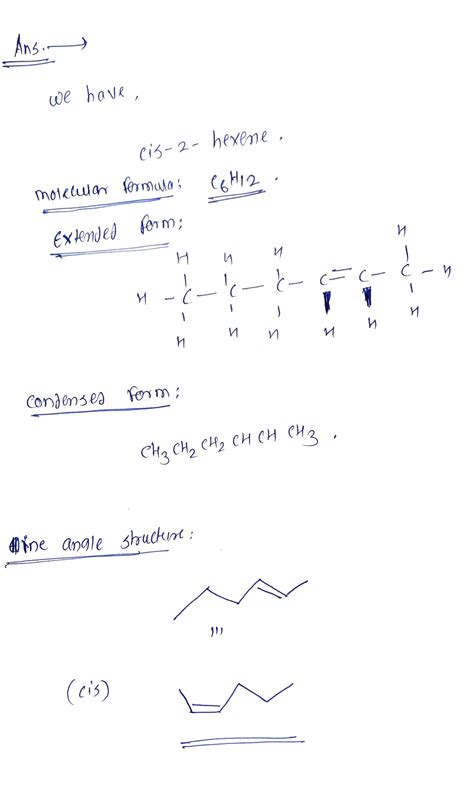 Ans. →
we have,
cis-2-hexene.
molecular formula: C6H12.
Extended form:
H
H H H H
H - C - C - C - C = C - C - H
H H H H H H
Condensed form:
CH3CH2CH2CHCHCH3.
line angle structure:
(cis)